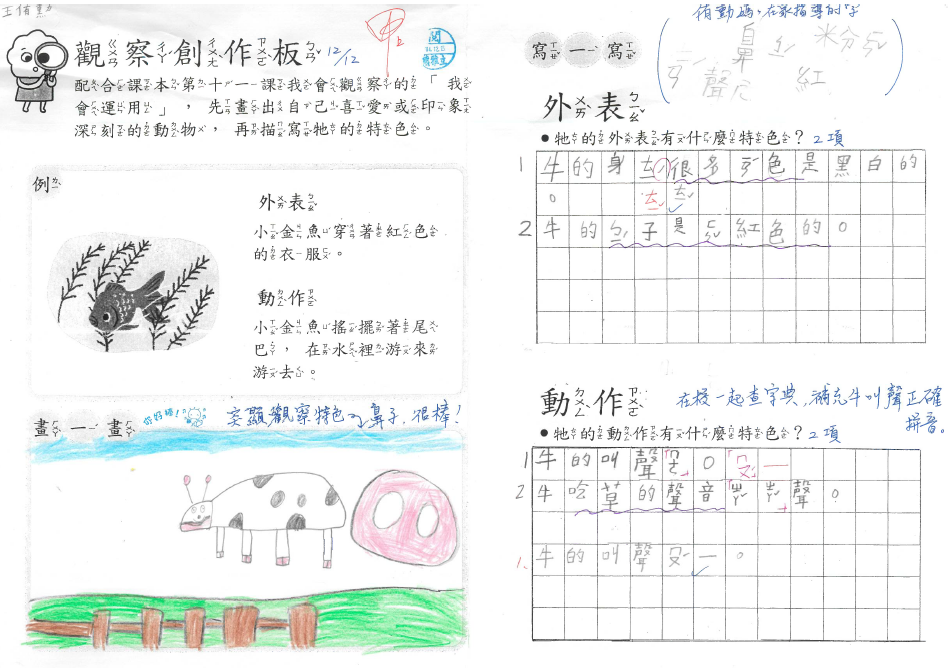 王侑勳
觀察創作板 12/12
甲上
閱
配合課本第十一課我會觀察的「我
會運用」，先畫出自己喜愛或印象
深刻的動物，再描寫牠的特色。
例
外表
小金魚穿著紅色
的衣服。
動作
小金魚搖擺著尾
巴，在水裡游來
游去。
畫一畫
你好棒！
突顯觀察特色 鼻子，很棒！
寫一寫
鼻 米分 聲 紅
外表
●牠的外表有什麼特色？2項
1 牛的身 很多 色是黑白的
。
2 牛的 子是 紅色的。
動作
在校一起查字典，補充牛叫聲正確
拼音。
●牠的動作有什麼特色？2項
1 牛的叫聲
2 牛吃草的聲音 聲。
1、牛的叫聲